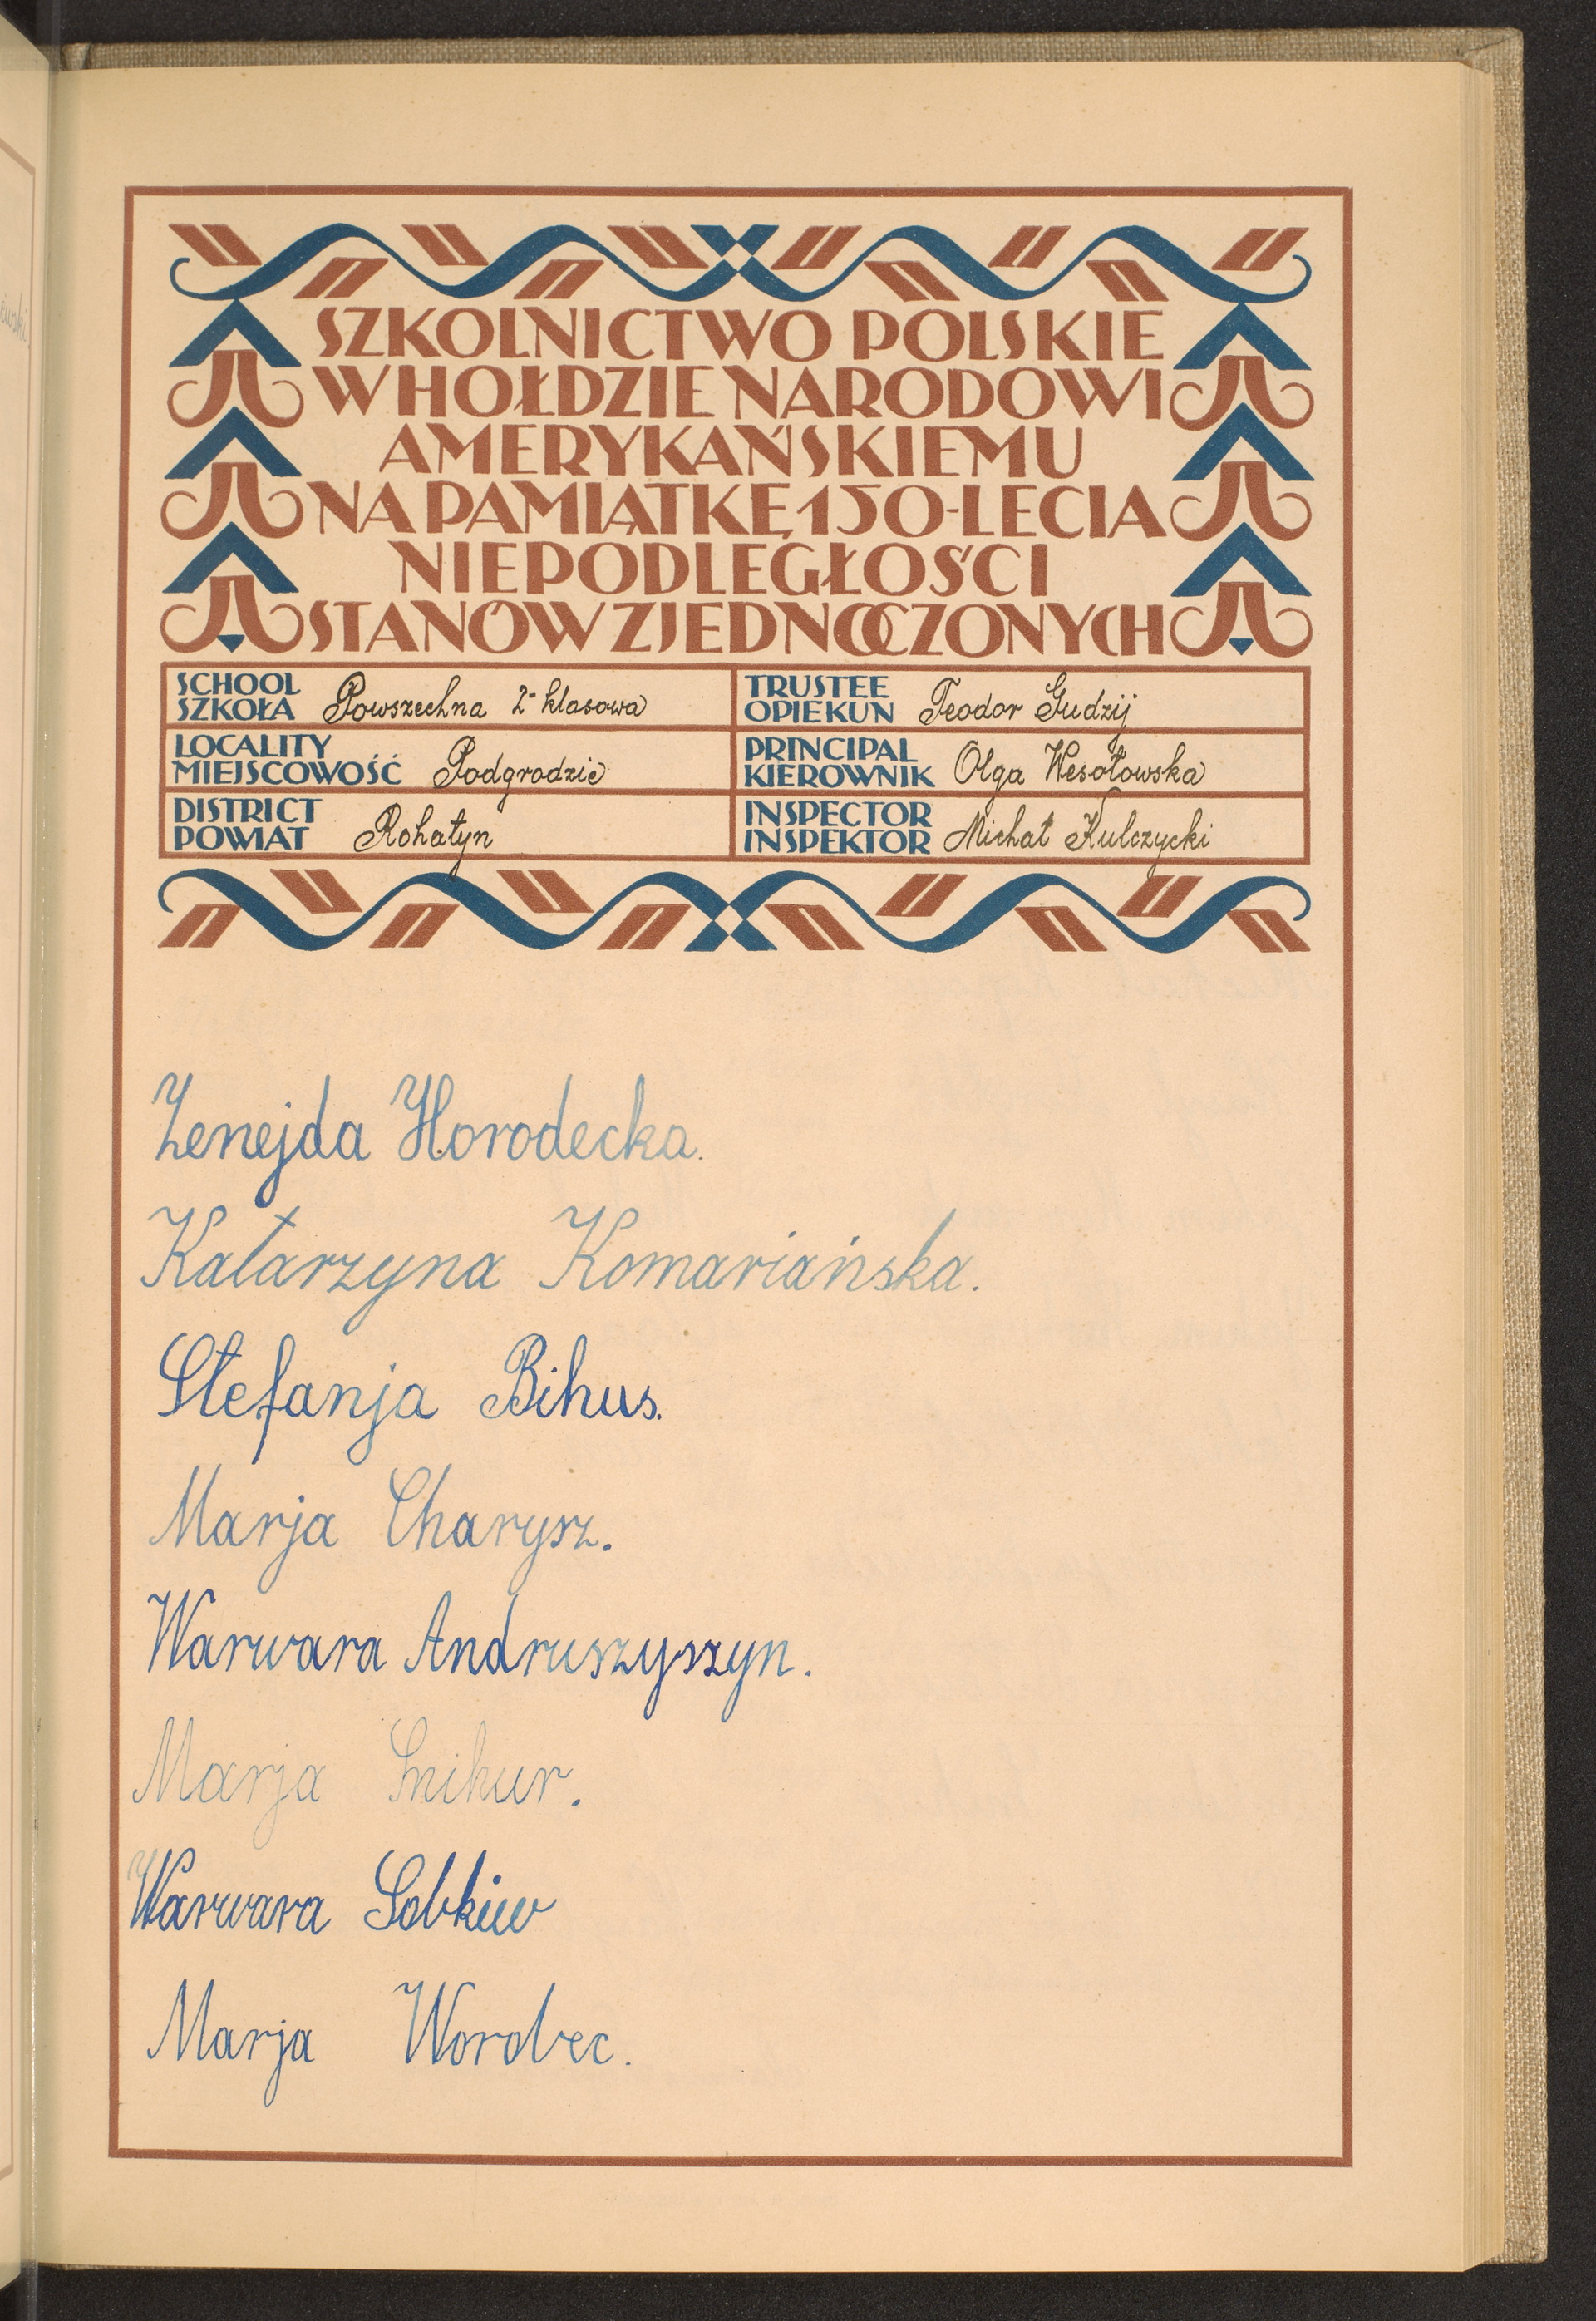 SZKOLNICTWO POLSKIE
W HOŁDZIE NARODOWI
AMERYKAŃSKIEMU
NA PAMIĄTKĘ 150-LECIA
NIEPODLEGŁOŚCI
STANÓW ZJEDNOCZONYCH
SCHOOL
SZKOŁA Powszechna 2-klasowa
TRUSTEE
OPIEKUN Teodor Gudzij
LOCALITY
MIEJSCOWOŚĆ Podgrodzie
PRINCIPAL
KIEROWNIK Olga Wesołowska
DISTRICT
POWIAT Rohatyn
INSPECTOR
INSPEKTOR Michał Kulczycki
Zenejda Horodecka.
Katarzyna Komariańska.
Stefanja Bihus.
Marja Charysz.
Warwara Andruszyszyn.
Marja Snihur.
Warwara Sobkiw
Marja Worobec.